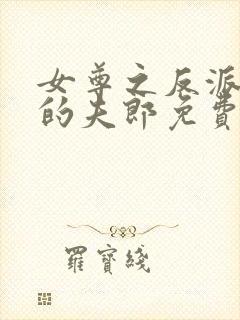 女尊之反派
的夫郎免費
羅寶綫